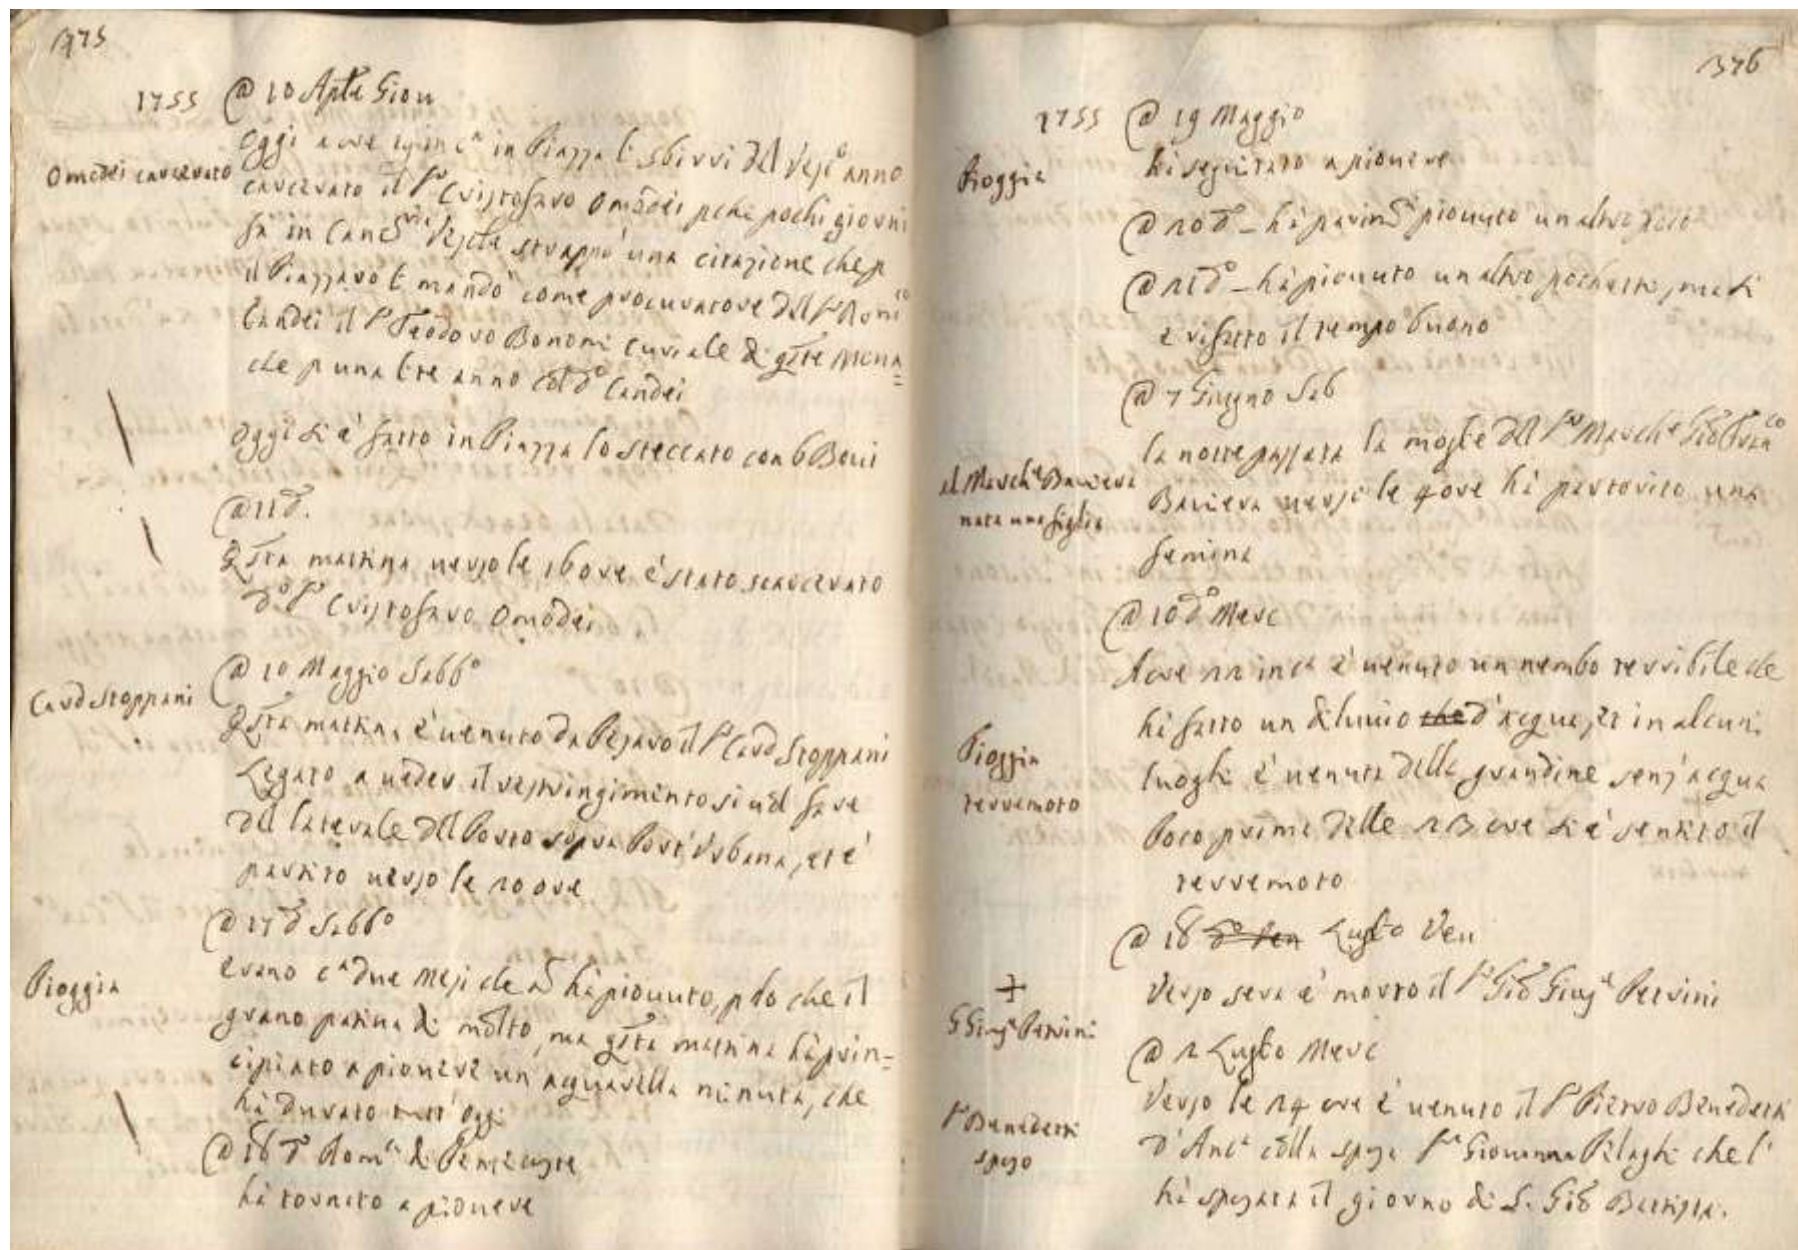 375
1755 @ 10 Aple Giov
Oggi a ore 19 in ca in Piazza li sbirri del Vesco anno
Omodei carcerato
carcerato il Sr Cristofaro Omodei pche pochi giorni
fa in Cancria Vescle strappò una citazione che p
il Piazzaro li mandò come procuratore del Sr Romco
Candei il Sr Teodoro Bonomi curiale di qste Mona=
che p una lite anno col do Candei
Oggi si è fatto in Piazza lo steccato con 6 Bovi
@ 11 do.
Qsta mattina verso le 16 ore è stato scarcerato
do Sr Cristofaro Omodei
@ 10 Maggio Sabbo
Card Stoppani
Qsta mattina è venuto da Pesaro il Sr Card Stoppani
Legato a veder il restringimento si vol fare
del laterale del Porto sopra Port' Urbana, et è
partito verso le 20 ore
@ 17 do Sabbo
Pioggia
erano ca due mesi che non hà piovuto, p lo che il
grano pativa di molto, ma qsta mattina hà prin=
cipiato a piovere un' acquarella minuta, che
hà durato tutt' oggi
@ 18 do Domca di Pentecoste
hà tornato a piovere
376
1755 @ 19 Maggio
Pioggia
hà seguitato a piovere
@ 20 do – hà parimte piovuto un altro poco
@ 21 do – hà piovuto un altro pochetto, ma si
è rifatto il tempo buono
@ 7 Giugno Sab
la notte passata la moglie del Sr Marche Gio Franco
al Marche Baviera
nata una figlia
Baviera verso le 4 ore hà partorito una
femina
@ 10 do Merc
A ore 22 in ca è venuto un nembo terribile che
hà fatto un diluvio che d' acqua, et in alcuni
Pioggia
terremoto
luoghi è venuta della grandine senz' acqua
Poco prima delle 23 ore si è sentito il
terremoto
@ 18 do Ven Luglio Ven
G Giuse Pervini
Verso sera è morto il Sr Gio Giuse Pervini
@ 2 Luglio Merc
Sr Benedetti
sposo
Verso le 24 ore è venuto il Sr Pietro Benedetti
d' Anca colla sposa Sra Giovanna Pilaghi che l'
hà sposata il giorno di S. Gio Battista.